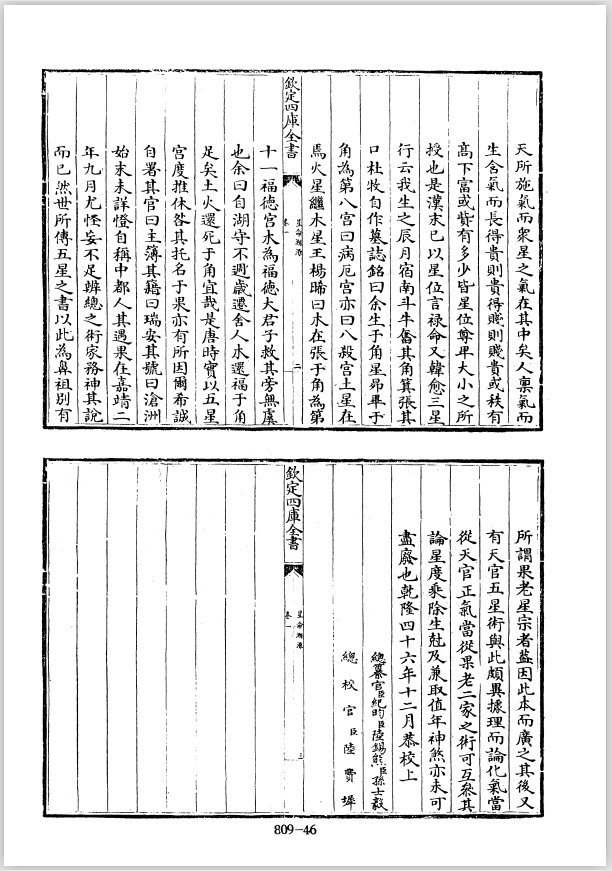 天所施氣而衆星之氣在其中矣人稟氣而
生含氣而長得貴則貴得賤則賤貴或秩有
高下富或貲有多少皆星位尊卑大小之所
授也是漢末已以星位言禄命又韓愈三星
行云我生之辰月宿南斗牛奮其角箕張其
口杜牧自作墓誌銘曰余生于角星昴畢于
角為第八宫曰病厄宫亦曰八殺宫土星在
焉火星繼木星王楊晞曰木在張于角為第
欽定四庫全書
星命溯源
卷一
二
十一福德宫木為福德大君子救其旁無虞
也余曰自湖守不週歲遷舍人木還福于角
足矣土火還死于角宜哉是唐時實以五星
宫度推休咎其托名于果亦有所因爾希誠
自署其官曰主簿其籍曰瑞安其號曰滄洲
始末未詳憕自稱中都人其遇果在嘉靖二
年九月尤怪妄不足辨總之術家務神其說
而已然世所傳五星之書以此為鼻祖別有
所謂果老星宗者葢因此本而廣之其後又
有天官五星術與此頗異據理而論化氣當
從天官正氣當從果老二家之術可互參其
論星度乘除生尅及兼取值年神煞亦未可
盡廢也乾隆四十六年十二月恭校上
總纂官臣紀昀臣陸錫熊臣孫士毅
總校官臣陸費墀
欽定四庫全書
星命溯源
卷一
三
809-46